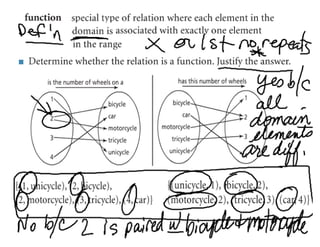 function special type of relation where each element in the
Def'n domain is associated with exactly one element
in the range X or 1st no repeats
Determine whether the relation is a function. Justify the answer.
is the number of wheels on a
1
2
3
4
bicycle
car
motorcycle
tricycle
unicycle
has this number of wheels
bicycle
car
motorcycle
tricycle
unicycle
1
2
3
4
yes b/c
all
domain
elements
are diff.
{(1, unicycle), (2, bicycle),
(2, motorcycle), (3, tricycle), (4, car)}
{(unicycle, 1), (bicycle, 2),
(motorcycle, 2), (tricycle, 3), (car, 4)}
No b/c 2 is paired w/ bicycle & motorcycle